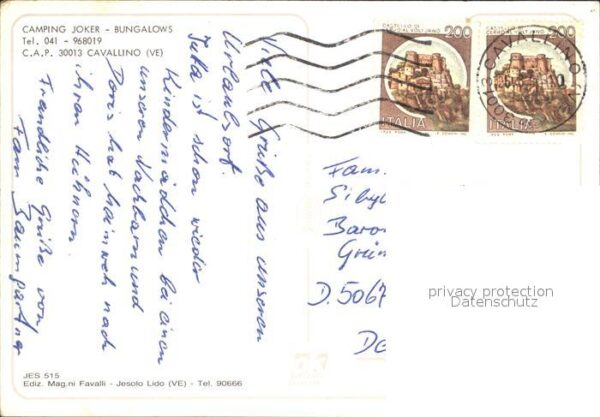 CAMPING JOKER - BUNGALOWS
Tel. 041 - 968019
C.A.P. 30013 CAVALLINO (VE)
Viele Grüße aus unseren
Urlaubsort.
ist schon wieder
Kindermädchen bei einen
unseren Nachbarn und
Doris hat heimweh nach
ihren Hühnern.
Freundliche Grüße von
Fam. Baumgartner
CASTELLO DI
CERRO AL VOLTURNO
200
ITALIA
CASTELLO DI
CERRO AL VOLTURNO
200
ITALIA
30013 CAVALLINO
Fam.
Siby
Baro
Grün
D. 5067
De
privacy protection
Datenschutz
JES 515
Ediz. Mag.ni Favalli - Jesolo Lido (VE) - Tel. 90666